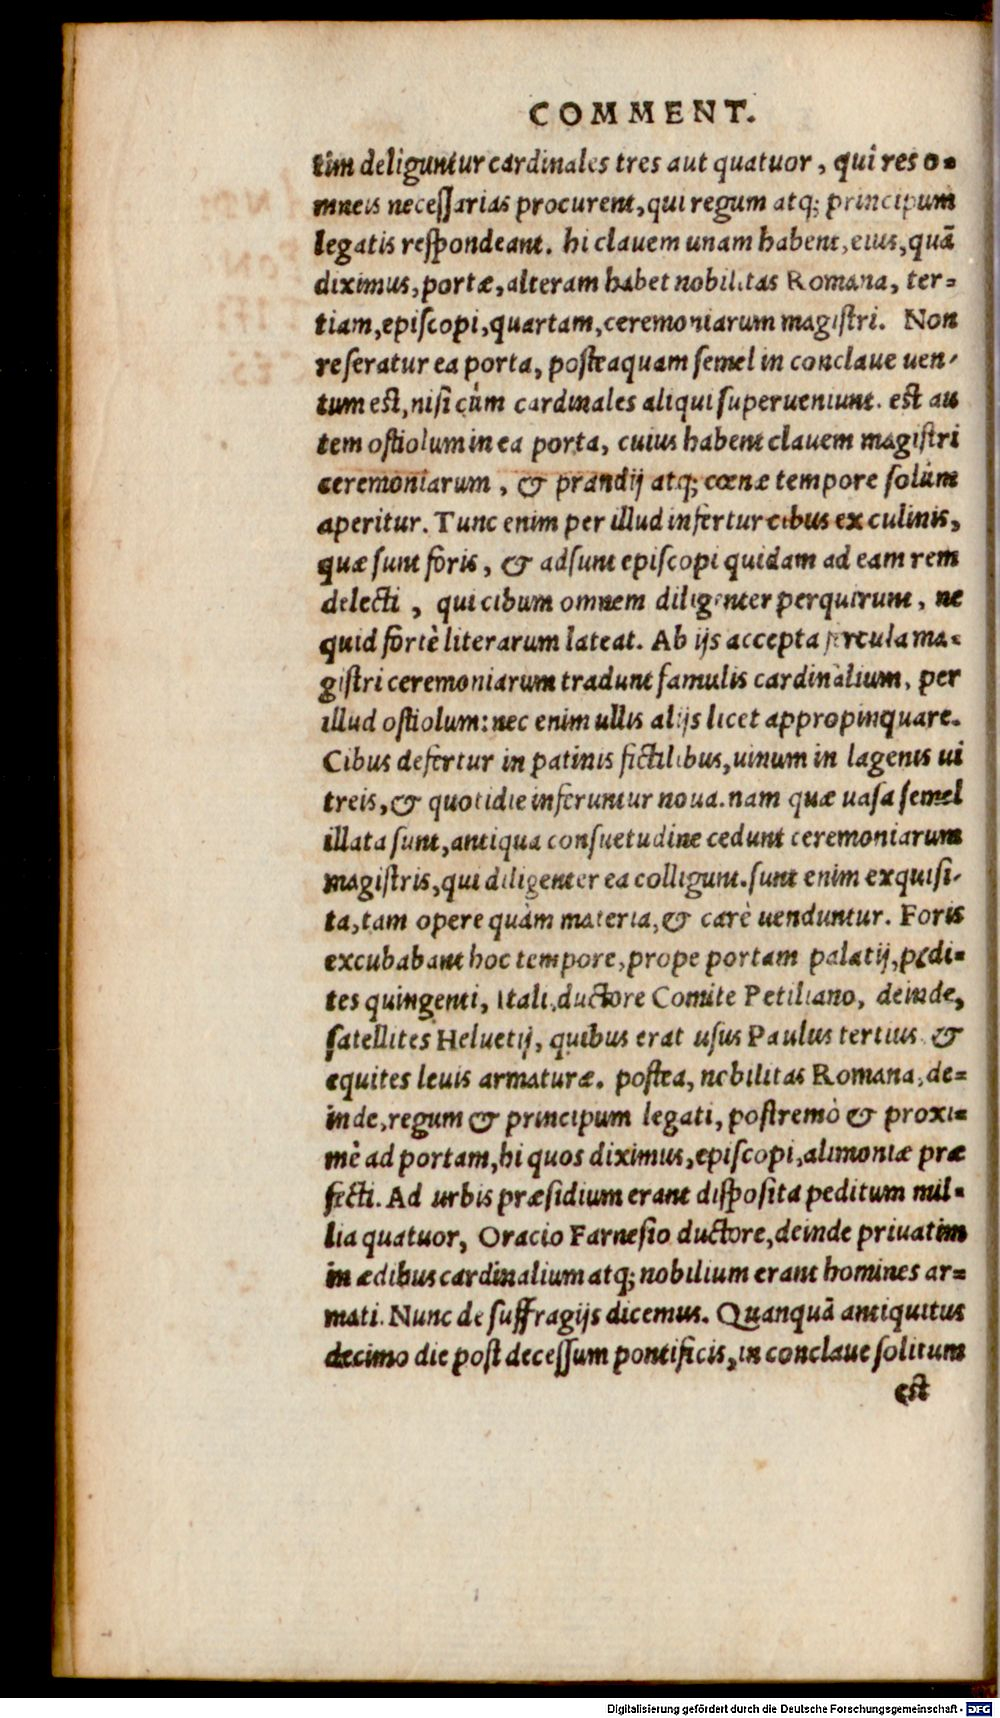 COMMENT.
tim deliguntur cardinales tres aut quatuor, qui res o-
mneis necessarias procurent, qui regum atq; principum
legatis respondeant. hi clauem unam habent, eius, quã
diximus, portæ, alteram habet nobilitas Romana, ter-
tiam, episcopi, quartam, ceremoniarum magistri. Non
reseratur ea porta, posteaquam semel in conclaue uen-
tum est, nisi cùm cardinales aliqui superueniunt. est au
tem ostiolum in ea porta, cuius habent clauem magistri
ceremoniarum, & prandij atq; cœnæ tempore solùm
aperitur. Tunc enim per illud infertur cibus ex culinis,
quæ sunt foris, & adsunt episcopi quidam ad eam rem
delecti, qui cibum omnem diligenter perquirunt, ne
quid fortè literarum lateat. Ab ijs accepta fercula ma-
gistri ceremoniarum tradunt famulis cardinalium, per
illud ostiolum: nec enim ullis alijs licet appropinquare.
Cibus defertur in patinis fictilibus, uinum in lagenis ui
treis, & quotidie inferuntur noua. nam quæ uasa semel
illata sunt, antiqua consuetudine cedunt ceremoniarum
magistris, qui diligenter ea colligunt. sunt enim exquisi-
ta, tam opere quàm materia, & carè uenduntur. Foris
excubabant hoc tempore, prope portam palatij, pedi-
tes quingenti, Itali, ductore Comite Petiliano, deinde,
satellites Heluetij, quibus erat usus Paulus tertius & 
equites leuis armaturæ. postea, nobilitas Romana, de-
inde, regum & principum legati, postremò & proxi-
mè ad portam, hi quos diximus, episcopi, alimoniæ præ
fecti. Ad urbis præsidium erant disposita peditum mil-
lia quatuor, Oracio Farnesio ductore, deinde priuatim
in ædibus cardinalium atq; nobilium erant homines ar-
mati. Nunc de suffragijs dicemus. Quanquã antiquitus
decimo die post decessum pontificis, in conclaue solitum
est
Digitalisierung gefördert durch die Deutsche Forschungsgemeinschaft - DFG